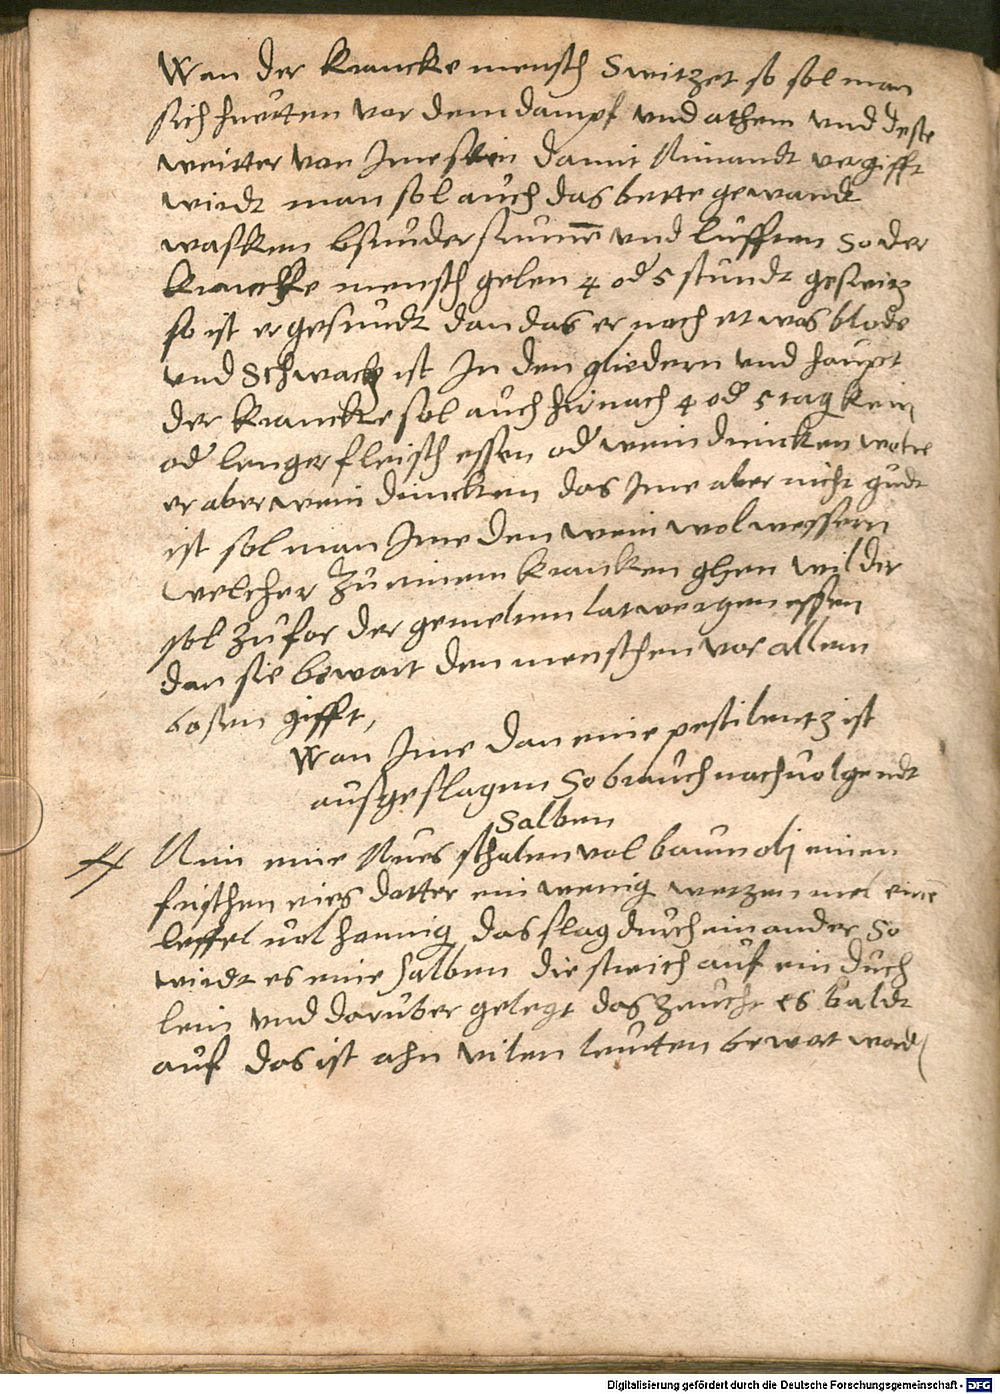 Wan der krancke mensch Switzet so sol man
sich huetten vor dem dampf und athem und deste
weitter von Ime sein damit Nimandt vergifft
wirdt man sol auch das bette gewandt
wasken bsunder sunnen und lufften So der
krancke mensch gelen 4 od 5 stundt geswitz
so ist er gesundt dan das er noch etwas blode
und Schwach ist In den gliedern und haupt
der krancke sol auch hirnach 4 od 5 tag kein
od lenger fleisch essen od wein drincken wolte
er aber wein drincken das Ime aber nicht gudt
ist sol man Ime den wein wol wessern
welcher zu einem krancken ghen wil der
sol zufor der gemelten latwergen essen
dan sie bewart den menschen vor allem
bosen gifft,
Wan Ime dan eine pestilentz ist
ausgeslagen So brauch nachvolgendt
Salben
Nim eine Nues schalen vol baumolj einen
frischen eies dotter ein wenig weitzen mel einen
leffel vol honnig das slag durch einander So
wirdt es eine salben die streich auf ein duch
lein und daruber gelegt das zeucht es baldt
auf das ist ahn vilen leutten bewert word